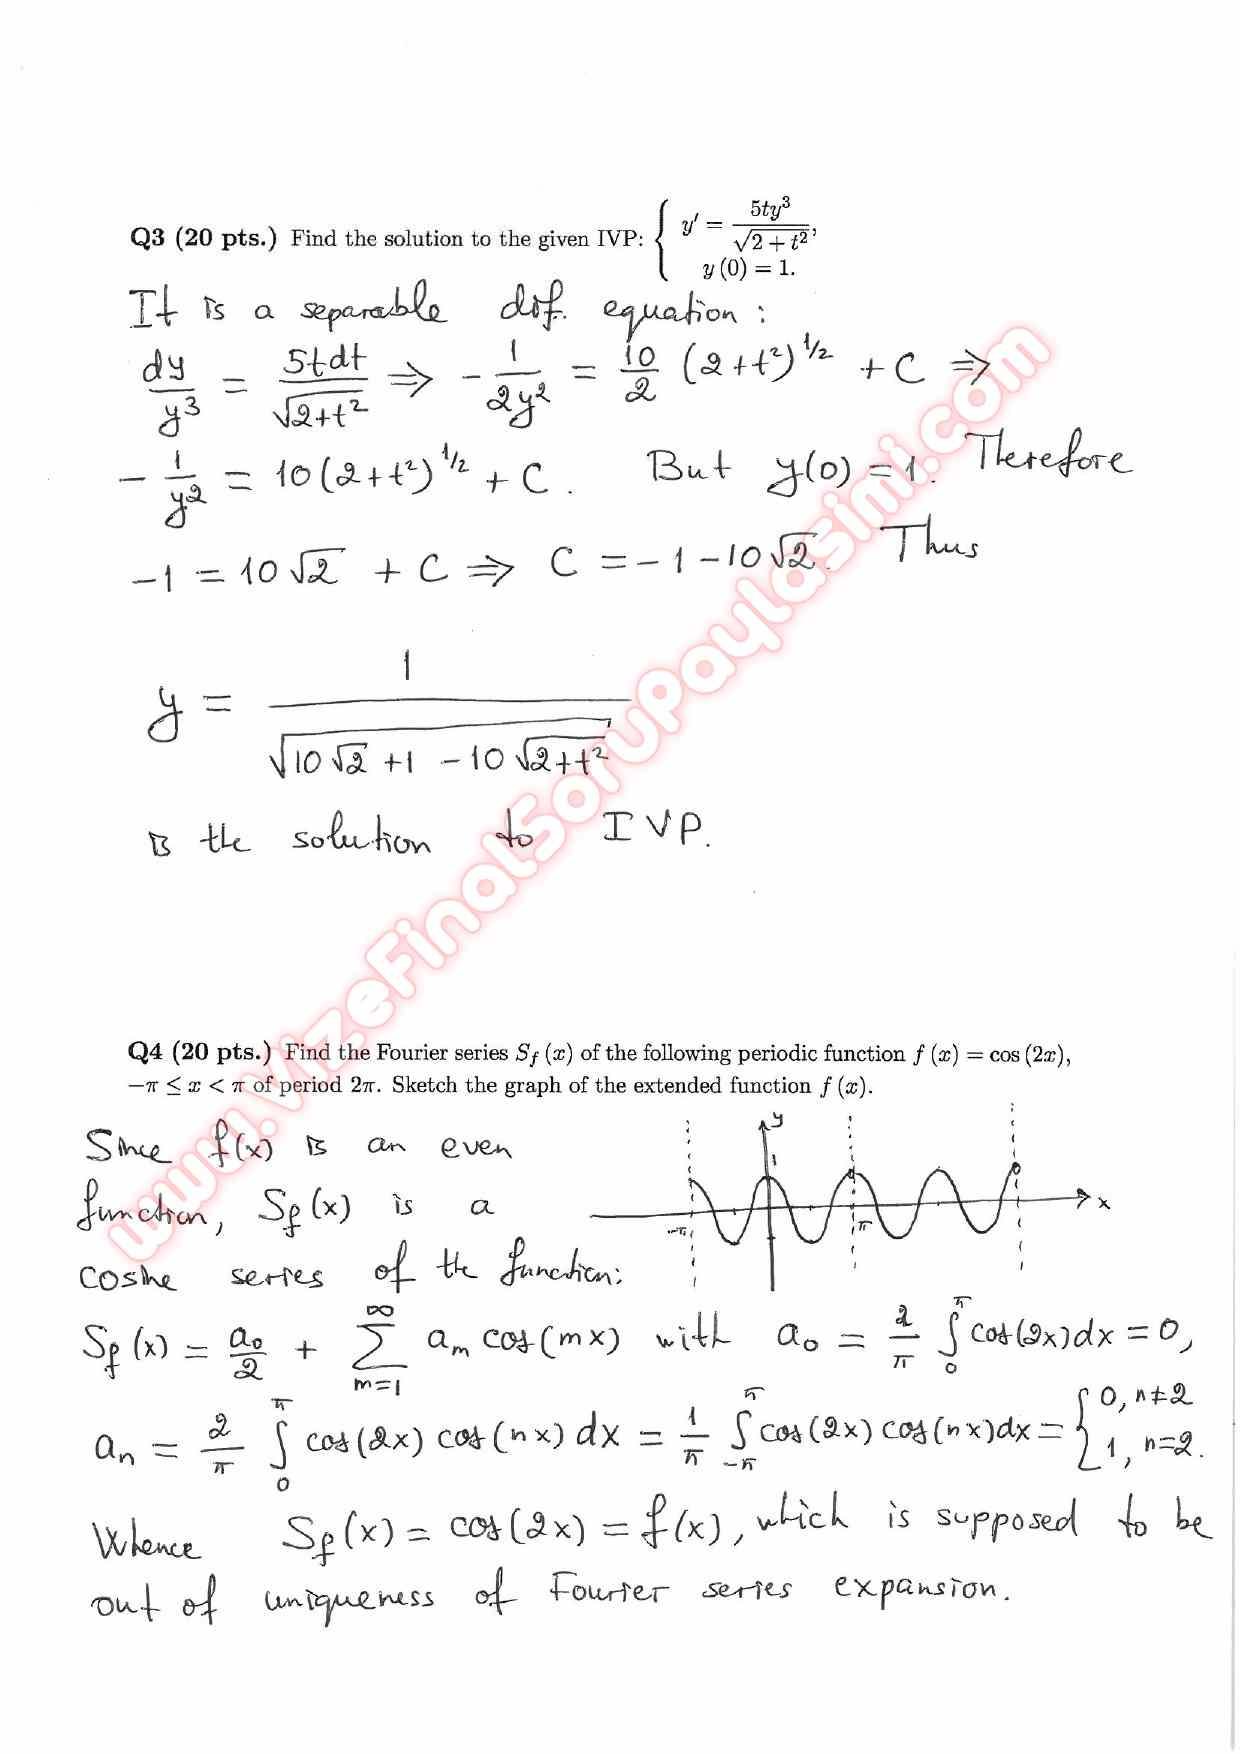 Q3 (20 pts.) Find the solution to the given IVP: { y' = 5ty³ / √(2 + t²), y(0) = 1.
It is a separable dif. equation:
dy/y³ = 5tdt/√(2+t²) ⇒ - 1/(2y²) = 10/2 (2+t²)^1/2 + C ⇒
- 1/y² = 10(2+t²)^1/2 + C. But y(0) = 1. Therefore
-1 = 10√2 + C ⇒ C = -1 -10√2. Thus
y = 1 / √(10√2 +1 -10√(2+t²))
is the solution to IVP.
Q4 (20 pts.) Find the Fourier series S_f (x) of the following periodic function f (x) = cos (2x),
−π ≤ x < π of period 2π. Sketch the graph of the extended function f (x).
Since f(x) is an even
function, S_f(x) is a
cosine series of the function:
y
1
-π
π
x
S_f(x) = a₀/2 + ∑_{m=1}^{∞} a_m cos(mx) with a₀ = 2/π ∫_0^π cos(2x)dx = 0,
a_n = 2/π ∫_0^π cos(2x) cos(nx) dx = 1/π ∫_{-π}^π cos(2x) cos(nx)dx = { 0, n≠2
1, n=2.
Whence S_f(x) = cos(2x) = f(x), which is supposed to be
out of uniqueness of Fourier series expansion.
www.VizeFinalSoruPaylasimi.com